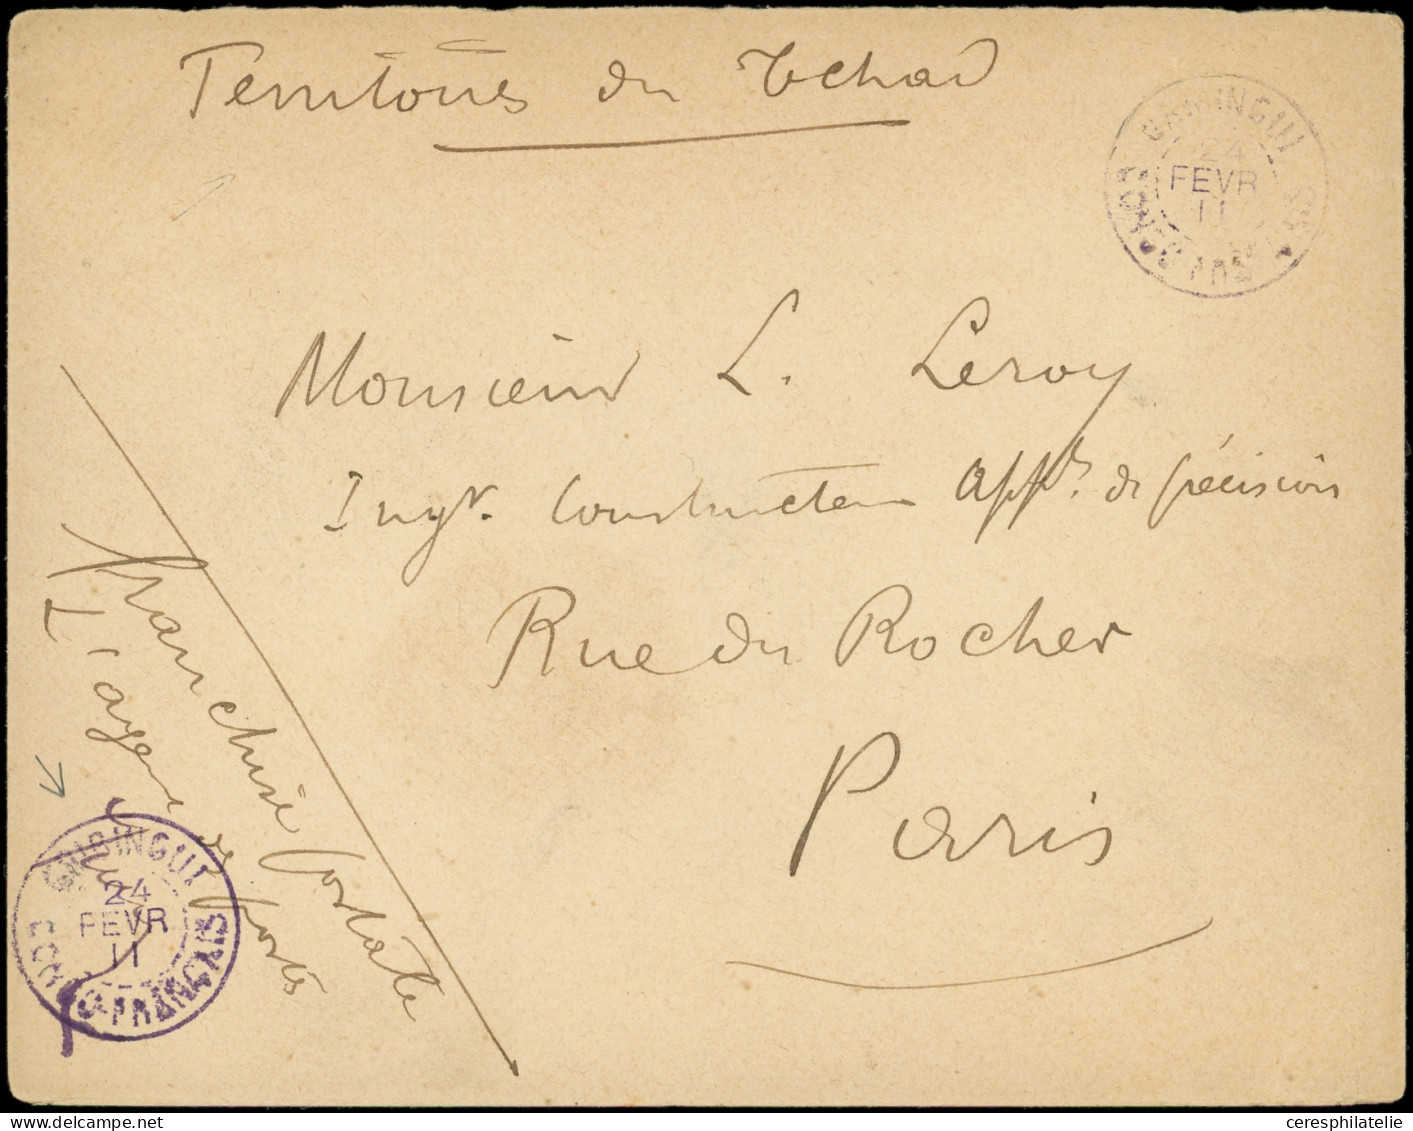 Territoires du Tchad
GRIBINGUI
24
FEVR
11
CONGO FRANÇAIS
Monsieur L. Leroy
Ingr. Constructeur App.ls de précision
Rue du Rocher
Paris
franchise postale
L'agent des postes
GRIBINGUI
24
FEVR
11
CONGO FRANÇAIS
ceresphilatelie.com